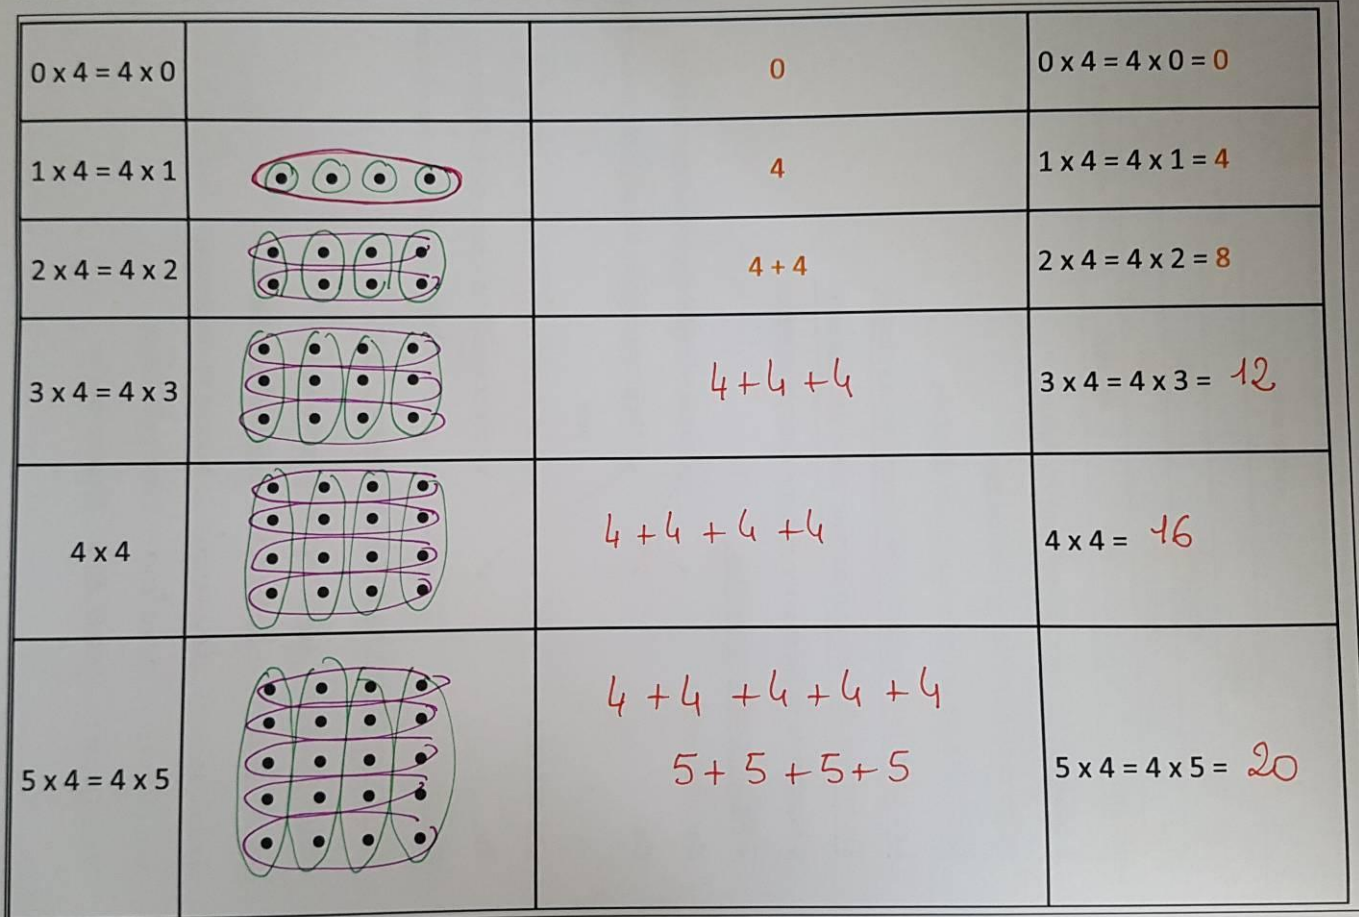 0 x 4 = 4 x 0 0 0 x 4 = 4 x 0 = 0
1 x 4 = 4 x 1 4 1 x 4 = 4 x 1 = 4
2 x 4 = 4 x 2 4 + 4 2 x 4 = 4 x 2 = 8
3 x 4 = 4 x 3 4 + 4 + 4 3 x 4 = 4 x 3 = 12
4 x 4 4 + 4 + 4 + 4 4 x 4 = 16
4 + 4 + 4 + 4 + 4
5 x 4 = 4 x 5 5 + 5 + 5 + 5 5 x 4 = 4 x 5 = 20